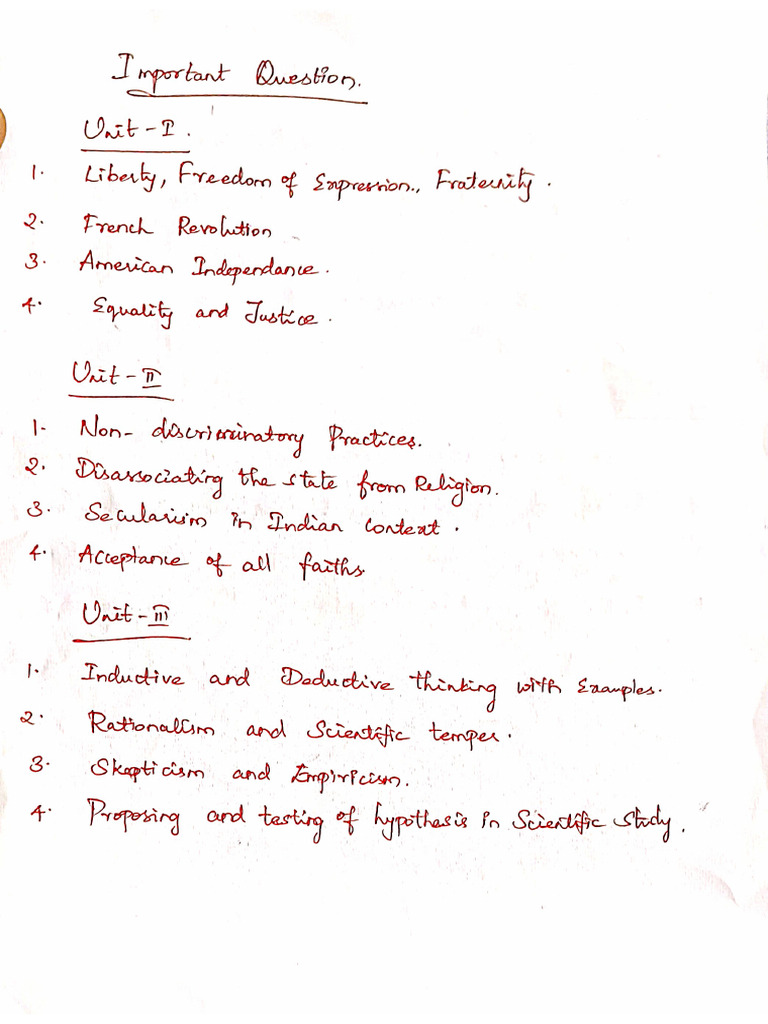 Important Question.
Unit - I.
1. Liberty, Freedom of Expression., Fraternity.
2. French Revolution
3. American Independance.
4. Equality and Justice.
Unit - II
1- Non- discriminatory Practices.
2. Disassociating the state from Religion.
3. Secularism in Indian context.
4. Acceptance of all faiths.
Unit - III
1. Inductive and Deductive thinking with Examples.
2. Rationalism and Scientific temper.
3. Skepticism and Empiricism.
4. Proposing and testing of hypothesis in Scientific study.